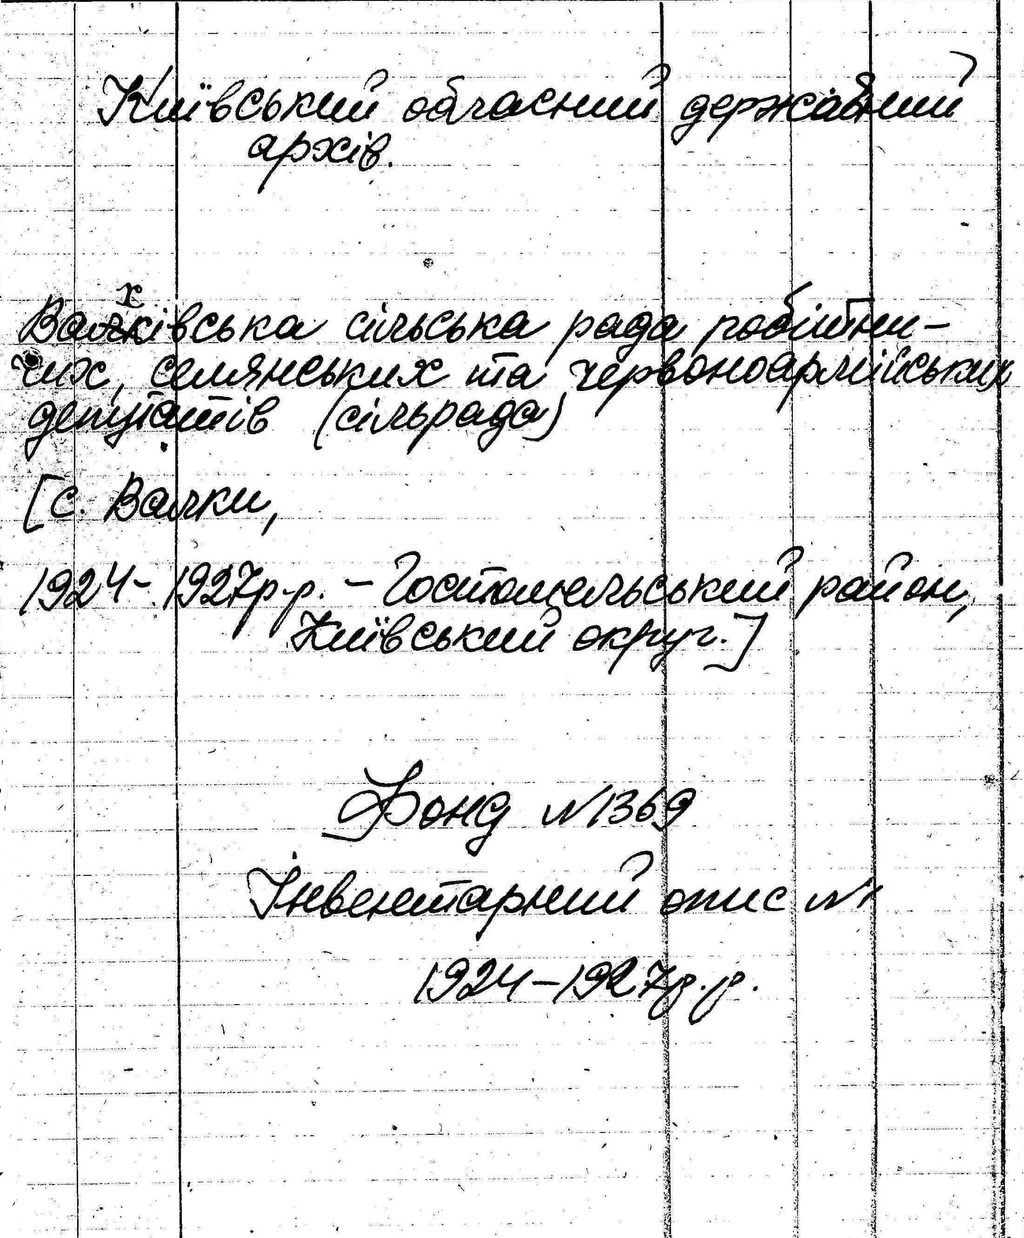 Київський обласний державний
архів.
х
Валківська сільська рада робітни-
чих, селянських та червоноармійських
депутатів (сільрада)
[с. Валки,
1924-1927р.р. – Гостомельський район,
Київський округ.]
Фонд №1369
Інвентарний опис №1
1924–1927р.р.